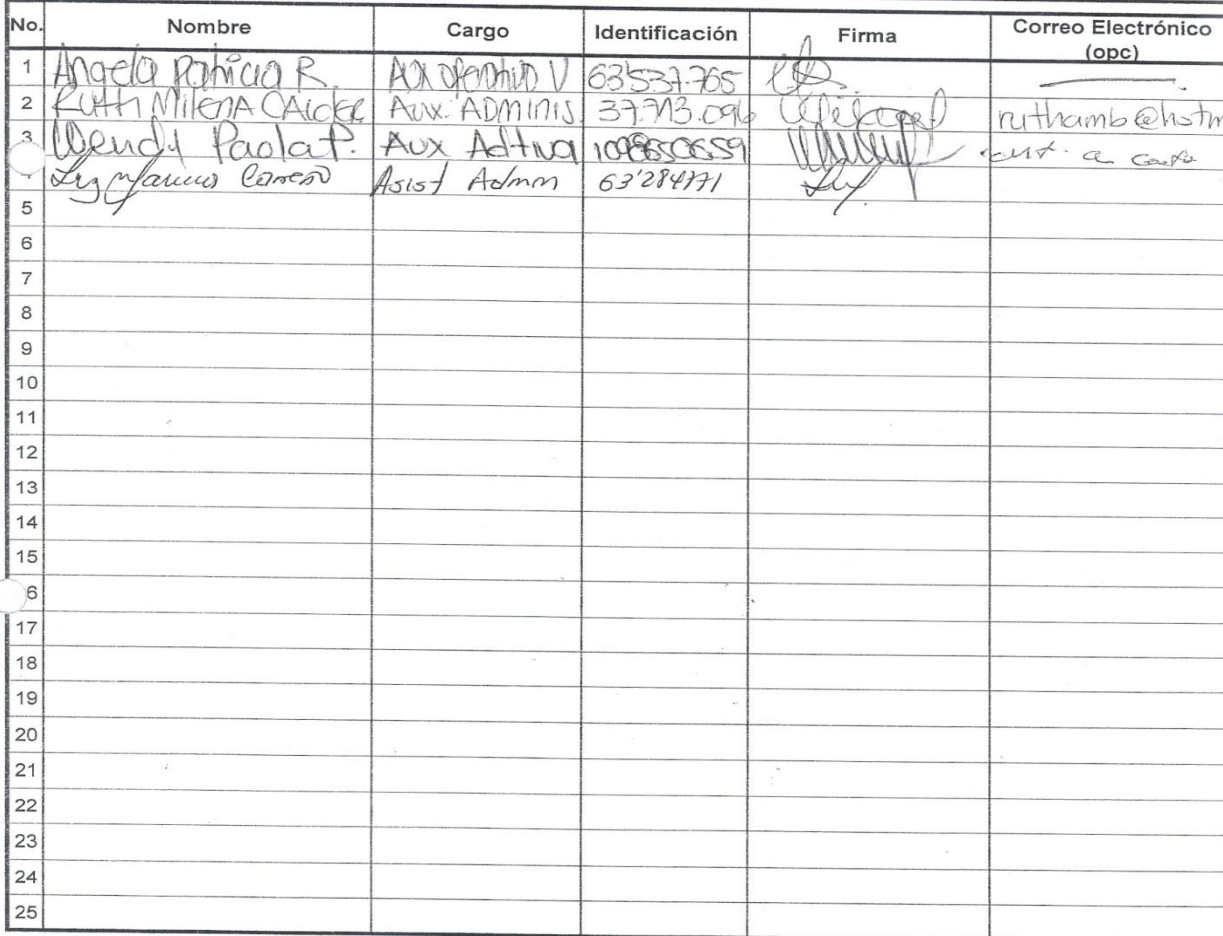 No. Nombre Cargo Identificación Firma Correo Electrónico (opc)
1 Angela Patricia R. Aux operativo V 63'537.765
2 Ruth Milena CAlder Aux. ADMINIS. 37.713.096 ruthamb@hotm
3 Wendy Paola P. Aux Adtiva 1098650659
Luz Marina Carreño Asist Admon 63'284771
5
6
7
8
9
10
11
12
13
14
15
6
17
18
19
20
21
22
23
24
25